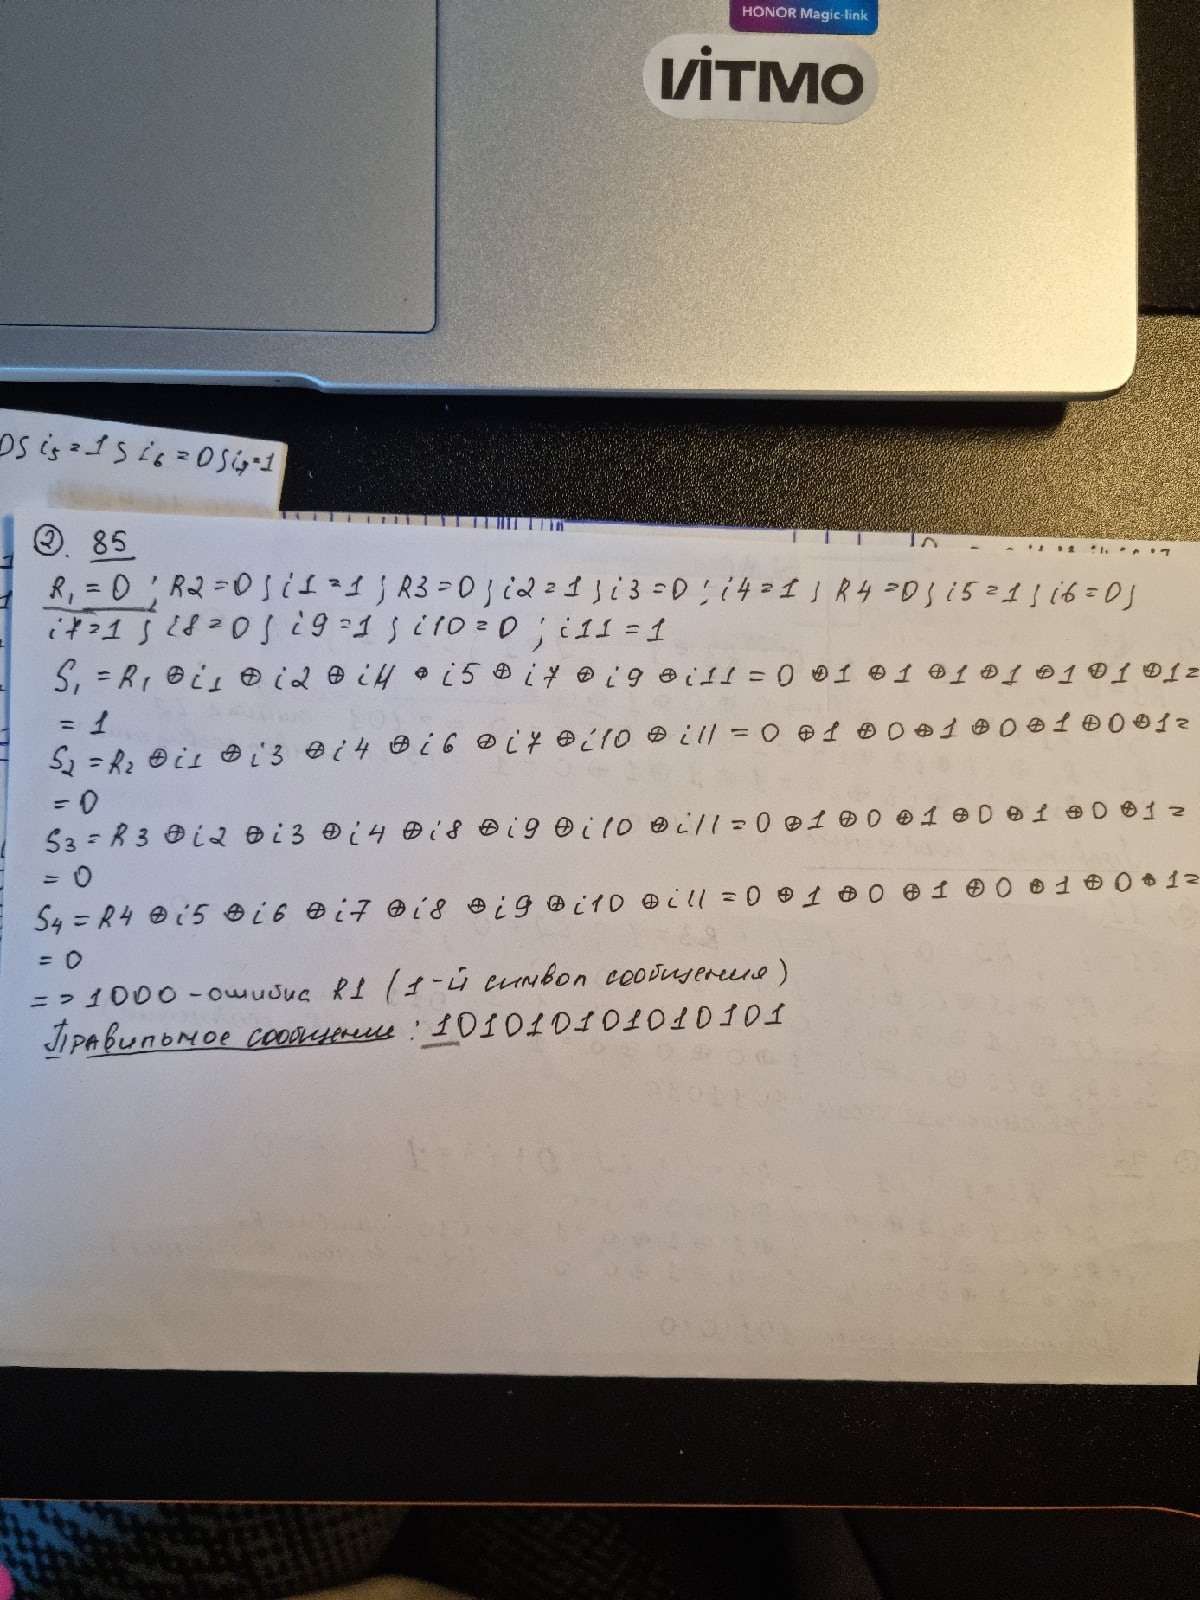 HONOR Magic-link
ИTMO
0; i₅=1; i₆=0; i₇=1
②. 85
R₁=0; R2=0; i1=1; R3=0; i2=1; i3=0; i4=1; R4=0; i5=1; i6=0;
i7=1; i8=0; i9=1; i10=0; i11=1
S₁=R₁⊕i₁⊕i2⊕i4⊕i5⊕i7⊕i9⊕i11=0⊕1⊕1⊕1⊕1⊕1⊕1⊕1=
=1
S₂=R₂⊕i₁⊕i3⊕i4⊕i6⊕i7⊕i10⊕i11=0⊕1⊕0⊕1⊕0⊕1⊕0⊕1=
=0
S₃=R3⊕i2⊕i3⊕i4⊕i8⊕i9⊕i10⊕i11=0⊕1⊕0⊕1⊕0⊕1⊕0⊕1=
=0
S₄=R4⊕i5⊕i6⊕i7⊕i8⊕i9⊕i10⊕i11=0⊕1⊕0⊕1⊕0⊕1⊕0⊕1=
=0
=>1000-ошибка R1 (1-й символ сообщения)
Правильное сообщение: 101010101010101